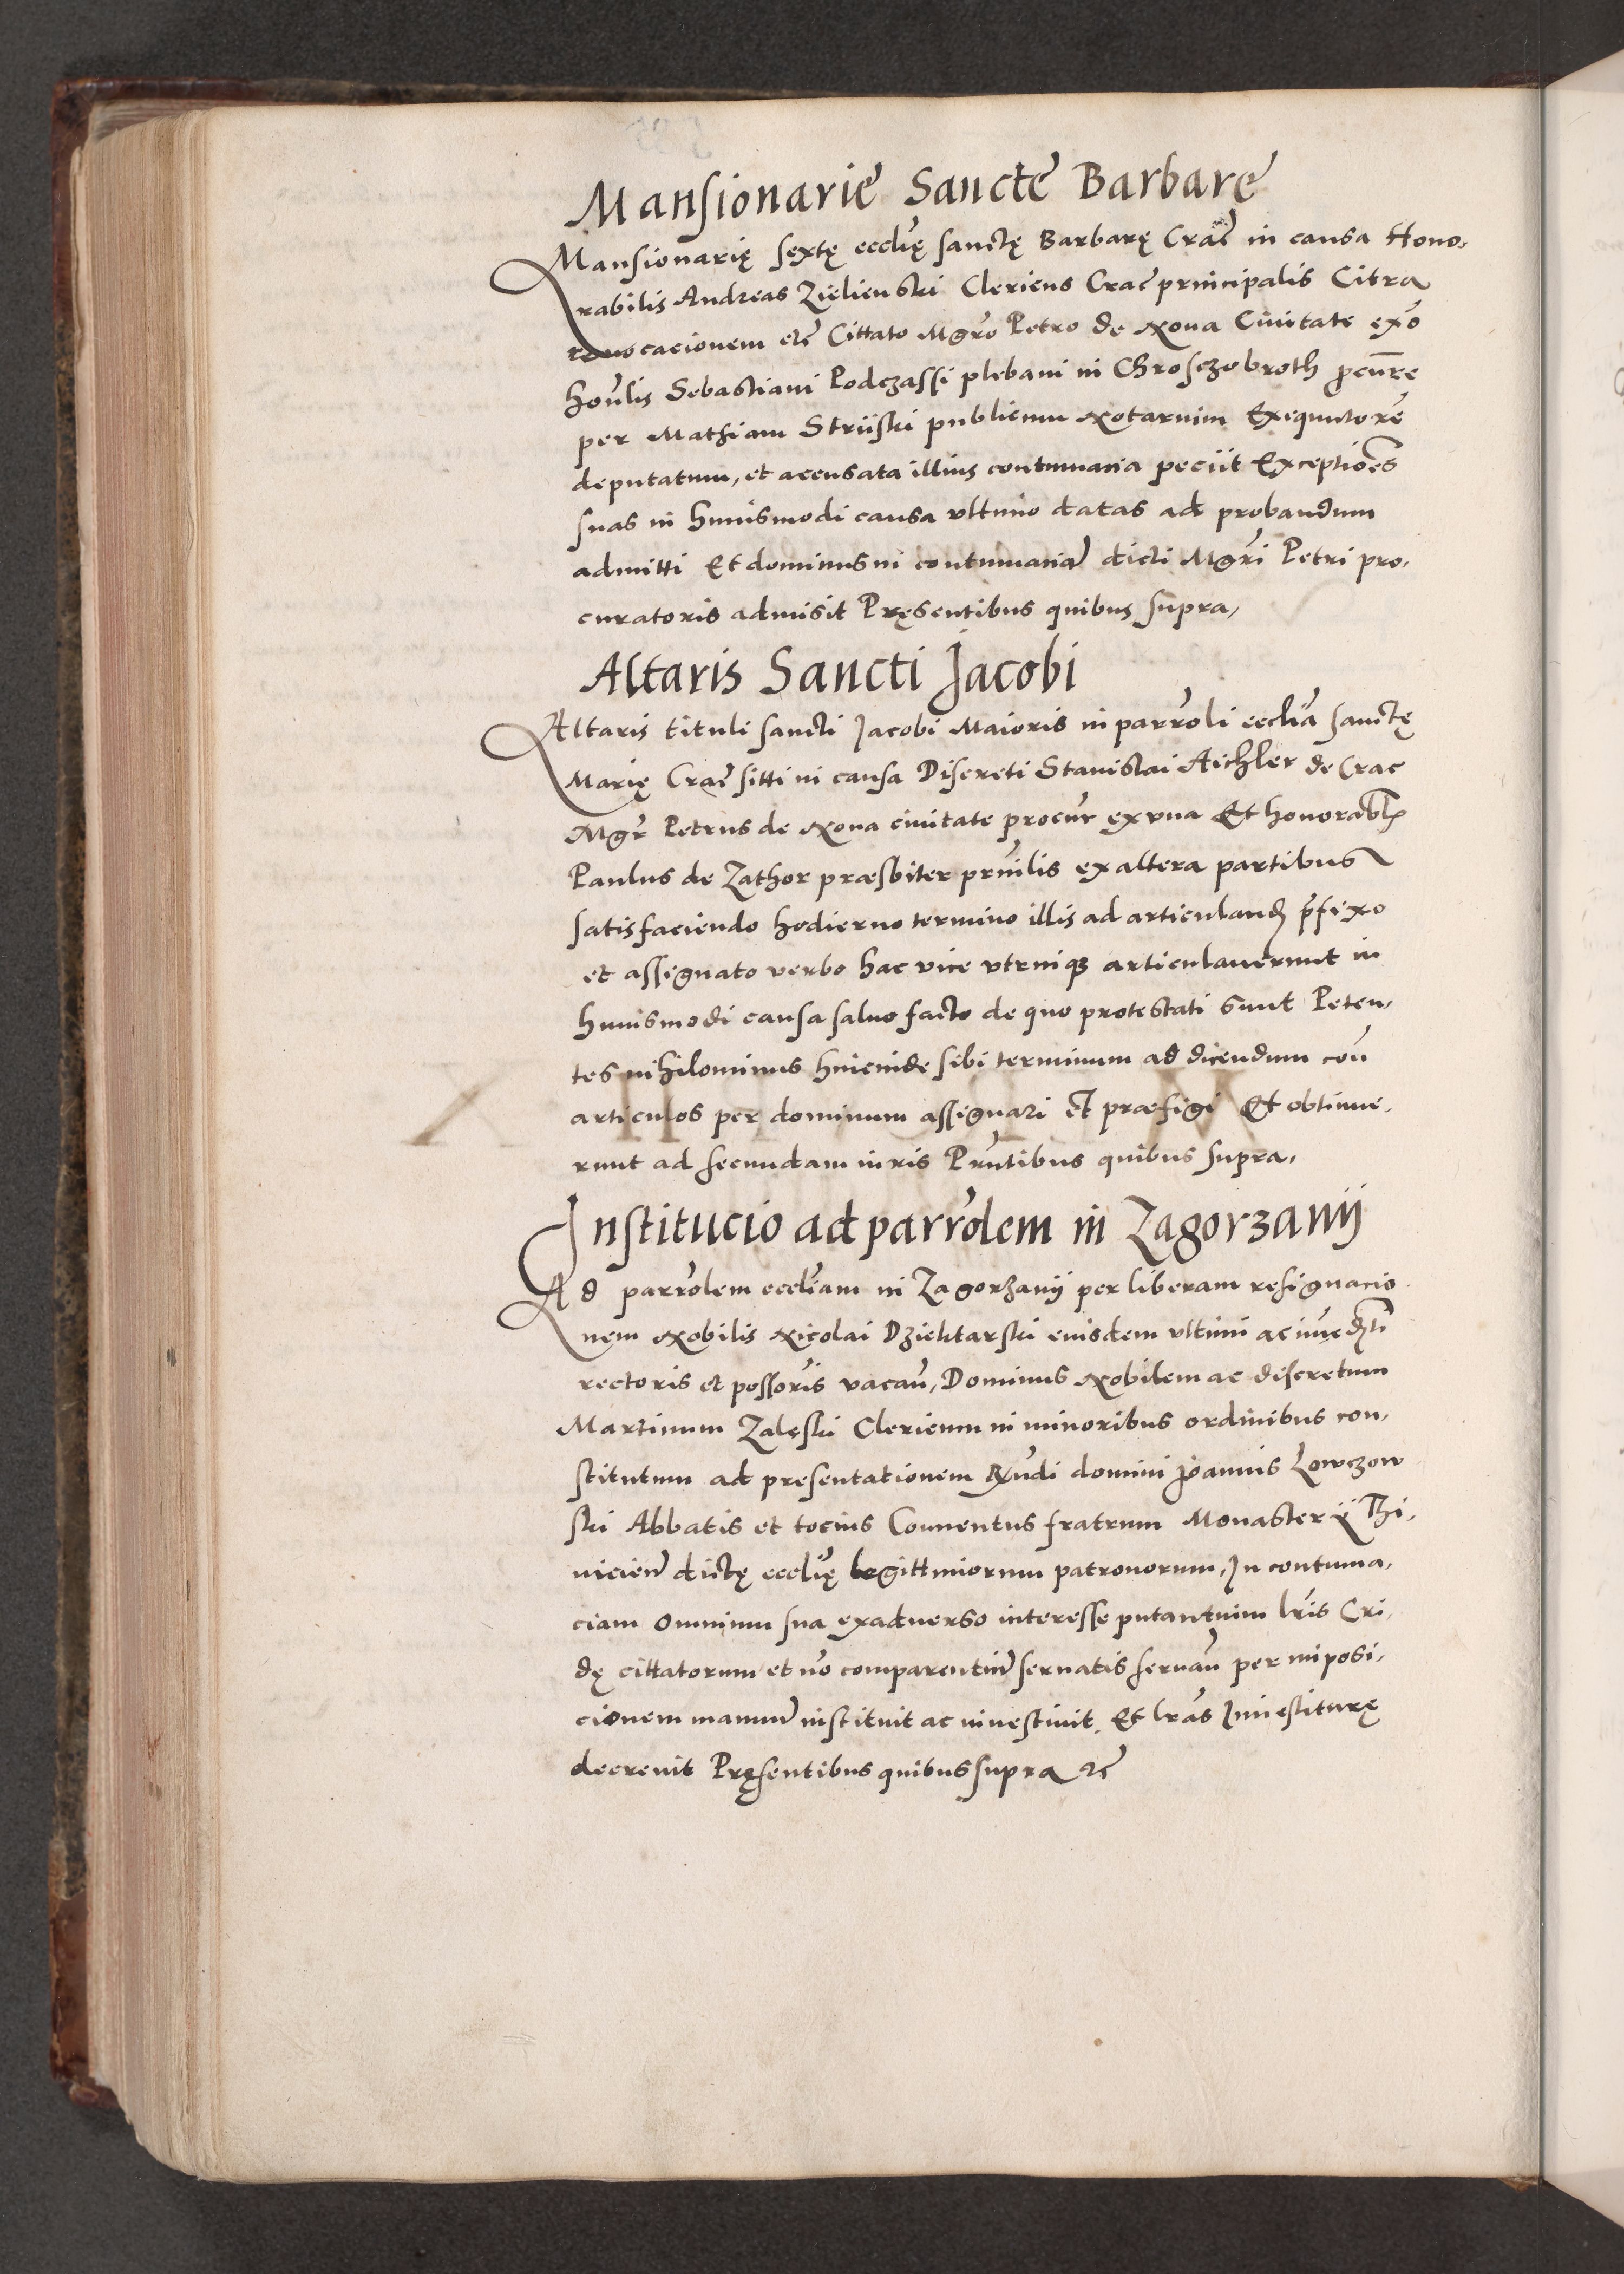 Mansionarie Sancte Barbarę
Mansionarię sextę ecclię sanctę Barbarę Crac in causa Hono,
rabilis Andreas Zielienski Clericus Crac principalis Citra
revocacionem etc Cittato Mgro Petro de Nova Civitate exo
honlis Sebastiani Podczassi plebani in Chrosczobroth procure
per Mathiam Striiski publicum Notarium Exequutore
deputatum, et accusata illius contumacia peciit Exceptiones
suas in huiusmodi causa ultimo datas ad probandum
admitti Et dominus in contumacia dicti Mgri Petri pro,
curatoris admisit Pręsentibus quibus supra,
Altaris Sancti Jacobi
Altaris tituli sancti Jacobi Maioris in parroli ecclia sanctę
Marię Crac sitti in causa Discreti Stanislai Aichler de Crac
Mgr Petrus de Nova civitate procur ex una Et honorabl
Paulus de Zathor præsbiter prinlis ex altera partibus
satisfaciendo hodierno termino illis ad articuland prefixo
et assignato verbo hac vice utrinque articulaverunt in
huiusmodi causa salvo facto de quo protestati sunt Peten,
tes nihilominus huicinde sibi terminum ad dicendum con
articulos per dominum assignari et præfigi Et obtinue,
runt ad secundam iuris Prntibus quibus supra,
Institucio ad parrolem in Zagorzanij
Ad parrolem eccliam in Zagorzanij per liberam resignacio
nem Nobilis Nicolai Dziektarski eiusdem ultimi ac immedti
rectoris et possoris vacan, Dominus Nobilem ac discretum
Martinum Zalęski Clericum in minoribus ordinibus con,
stitutum ad presentationem Rndi domini Joannis Lowczow
ski Abbatis et tocius Conventus fratrum Monasterij Thi,
nicien dictę ecclię legittimorum patronorum, In contuma,
ciam omnium sua exadverso interesse putantium lris Cri,
dę cittatorum et no comparentium servatis servan per imposi,
cionem manum instituit ac investivit, Et lras Investiturę
decrevit Pręsentibus quibus supra etc